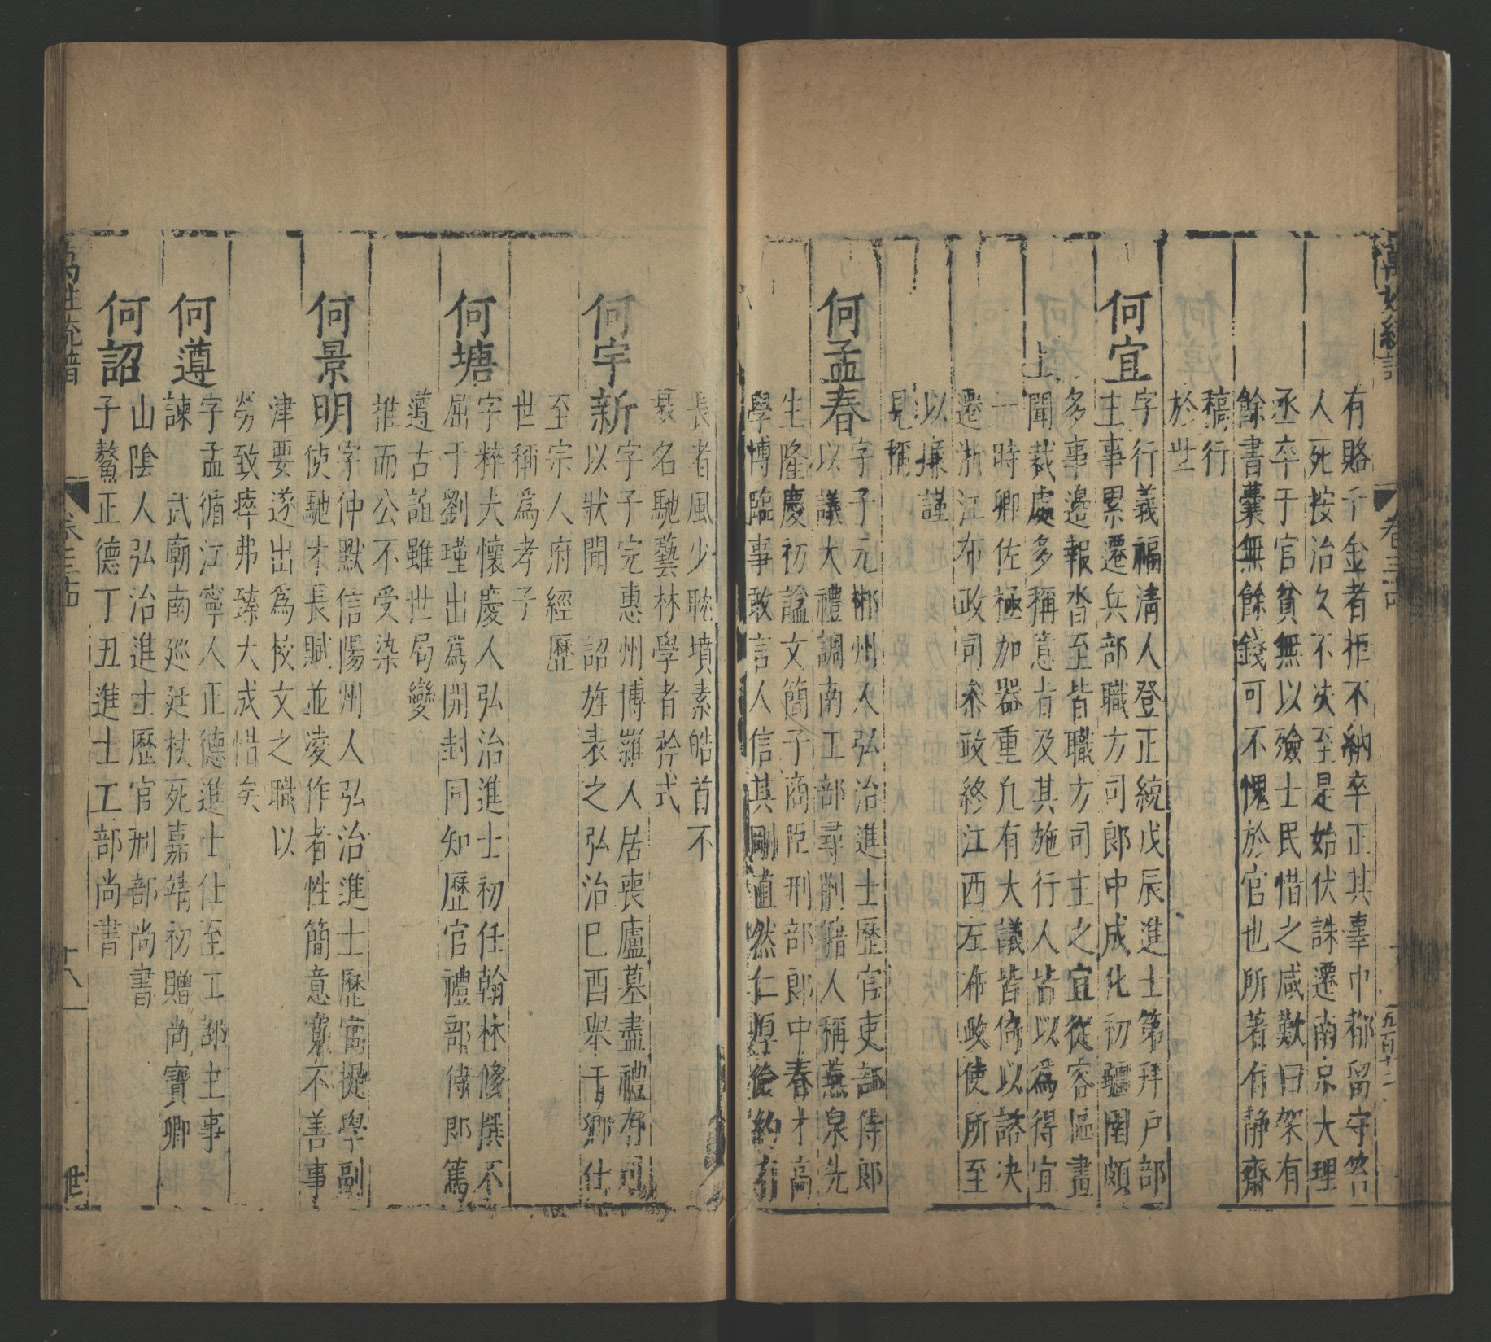 萬姓統譜
卷三十四
有賂千金者拒不納卒正其辜中都留守笞
人死按治久不決至是始伏誅遷南京大理
丞卒于官貧無以殮士民惜之咸歎曰架有
餘書囊無餘錢可不愧於官也所著有靜齋
稿行
於世
何宜
字行義福清人登正統戊辰進士第拜戶部
主事累遷兵部職方司郎中成化初疆圉頗
多事邊報沓至皆職方司主之宜從容區畫
上聞裁處多稱意旨及其施行人皆以為得宜
一時卿佐極加器重凡有大議皆倚以諮決
遷浙江布政司叅政終江西左布政使所至
以廉謹
見稱
何孟春
字子元郴州人弘治進士歷官吏部侍郎
以議大禮調南工部尋削籍人稱燕泉先
生隆慶初諡文簡子商臣刑部郎中春才高
學博臨事敢言人信其剛直然仁厚儉約有
長者風少耽墳素皓首不
衰名馳藝林學者矜式
何宇新
字子完惠州博羅人居喪廬墓盡禮有司
以狀聞 詔旌表之弘治己酉舉于鄉仕
至宗人府經歷
世稱為孝子
何塘
字粹夫懷慶人弘治進士初任翰林修撰不
屈于劉瑾出為開封同知歷官禮部侍郎篤
遵古誼雖世局變
推而公不受染
何景明
字仲默信陽州人弘治進士歷官提學副
使馳才長賦並凌作者性簡意寬不善事
津要遂出為校文之職以
勞致瘁弗臻大成惜矣
何遵
字孟循江寧人正德進士仕至工部主事
諫 武廟南廵廷杖死嘉靖初贈尚寶卿
何詔
山陰人弘治進士歷官刑部尚書
子鰲正德丁丑進士工部尚書
萬姓統譜
卷三十四
十八